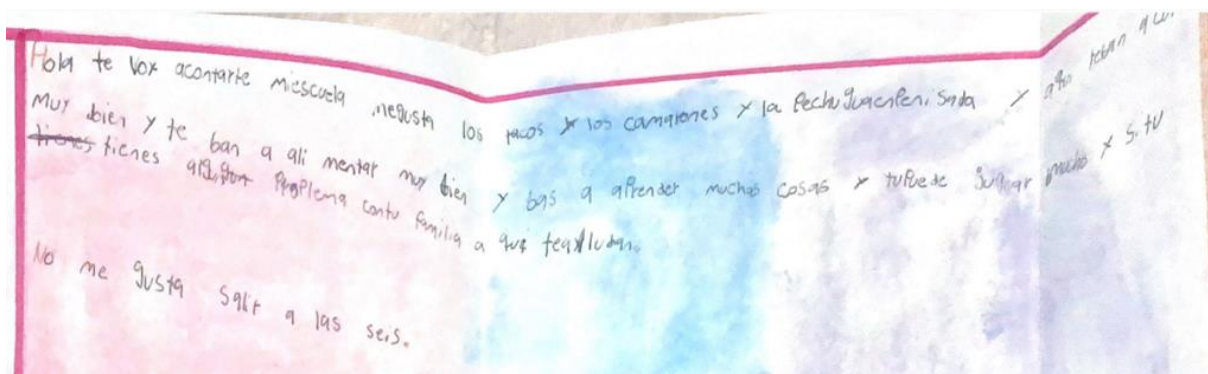 Hola te vox acontarte miescuela megusta los tacos y los camarones y la Pechuguaenpenisada y aho teban a
Muy bien y te ban a ali mentar muy bien y bas a aprender muchas cosas y tupuede jugar mucho y si tu
tienes tienes Proplema contu familia a qui teayudan.
No me gusta salir a las seis.